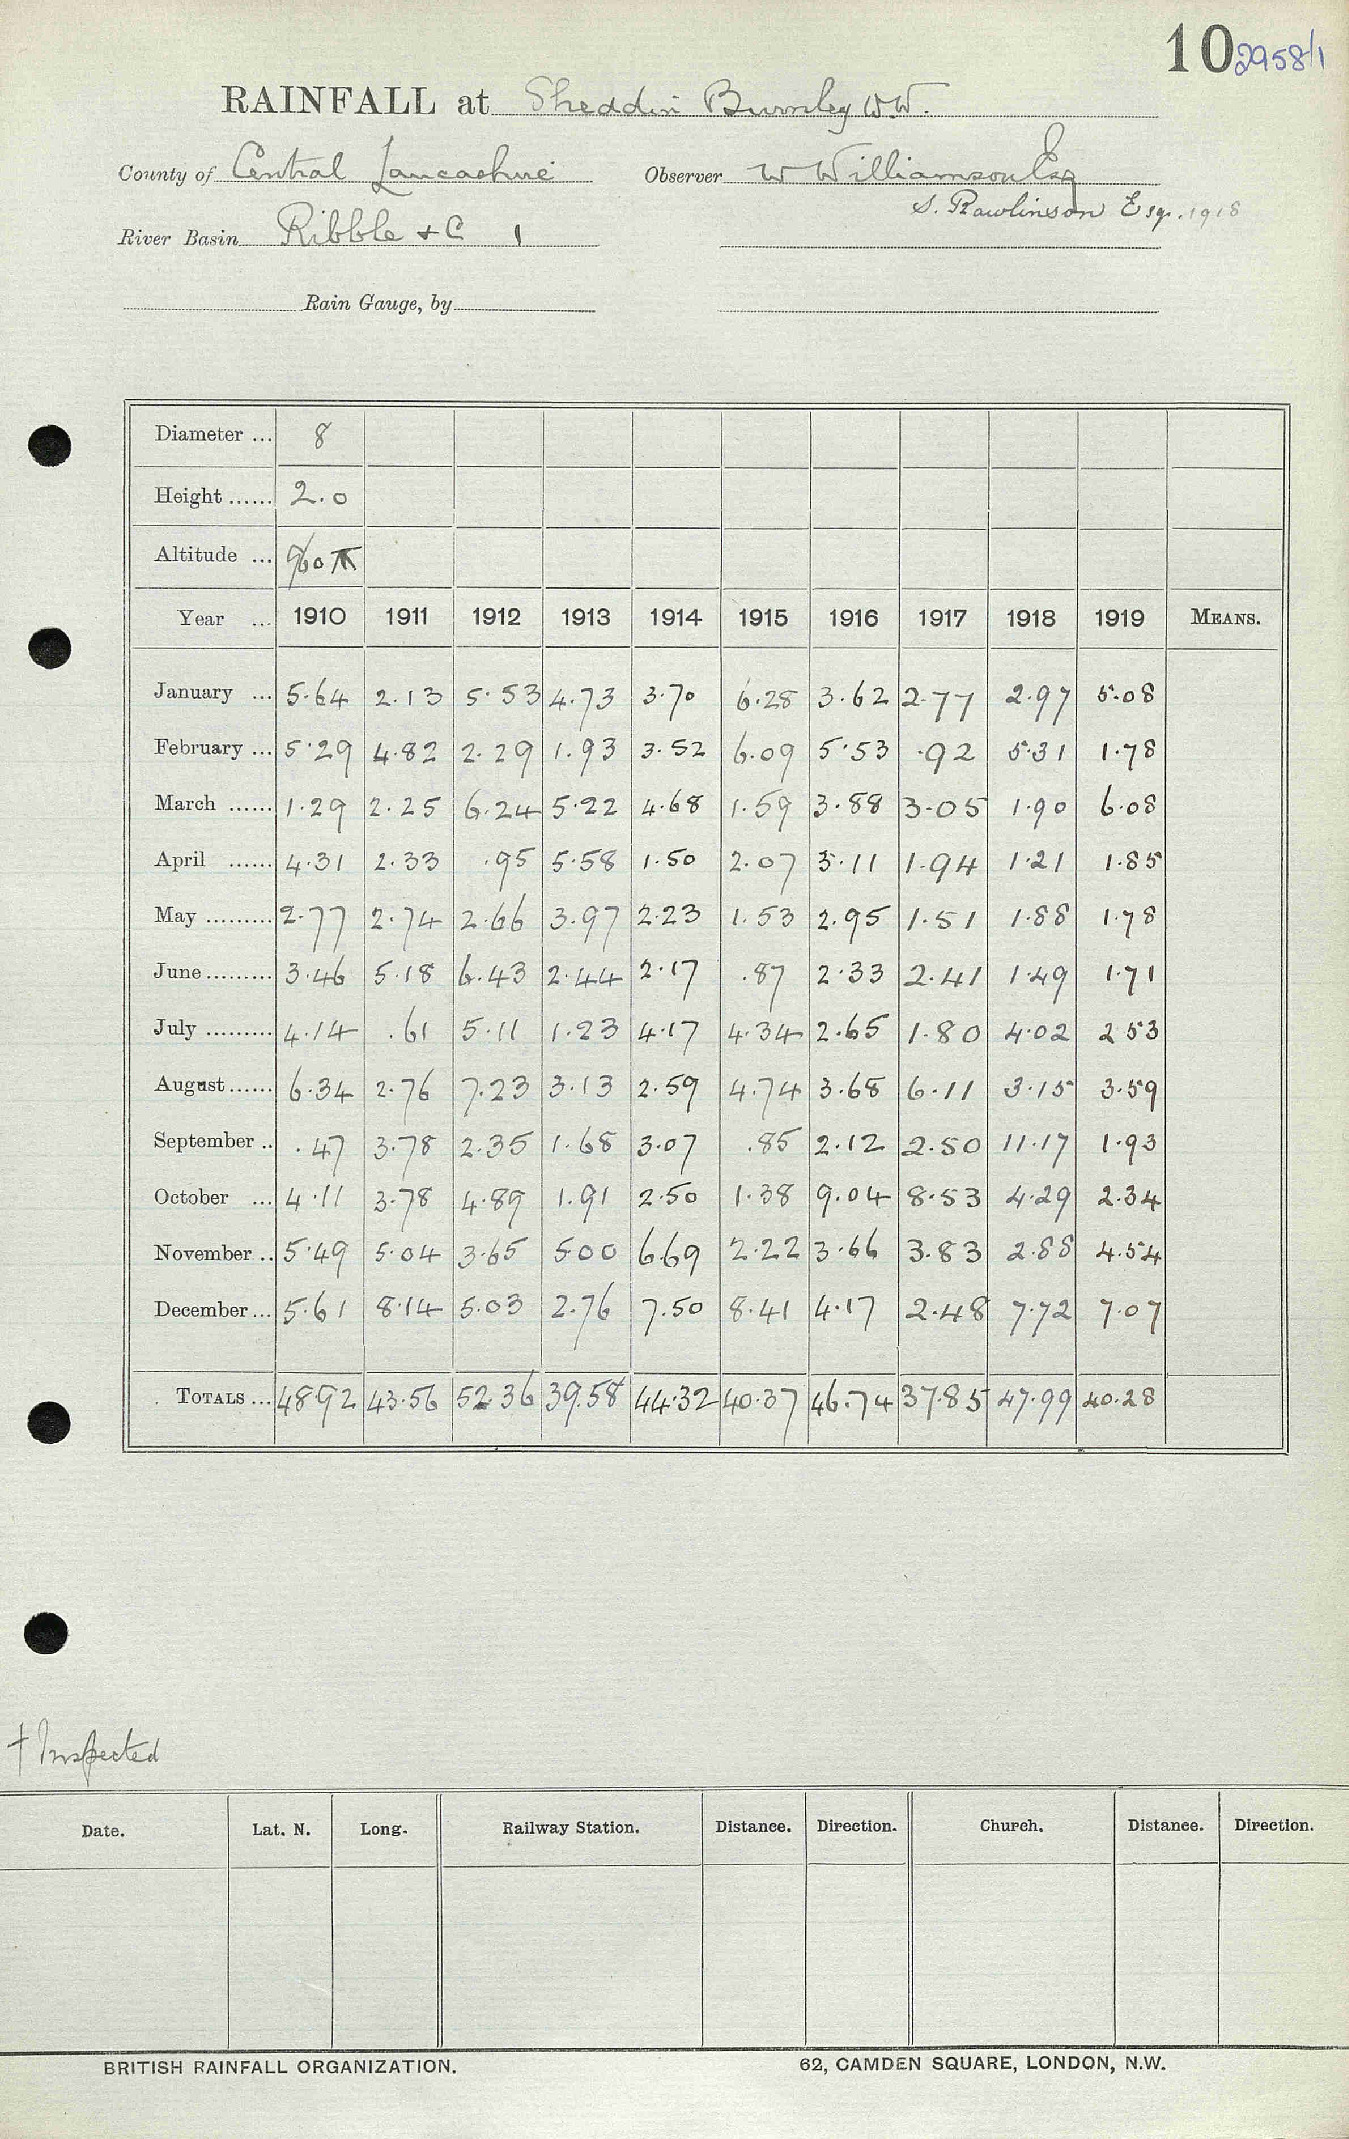 10 2958/1
RAINFALL at Sheddin Burnley W.W.
County of Central Lancashire Observer W Williamson Esq
S. Rawlinson Esq. 1918
River Basin Ribble + C 1
Rain Gauge, by
Diameter ... 8
Height ...... 2.0
Altitude ...
Year ... 1910 1911 1912 1913 1914 1915 1916 1917 1918 1919 MEANS.
January ... 5.64 2.13 5.53 4.73 3.70 6.28 3.62 2.77 2.97 5.08
February ... 5.29 4.82 2.29 1.93 3.52 6.09 5.53 .92 5.31 1.78
March ...... 1.29 2.25 6.24 5.22 4.68 1.59 3.88 3.05 1.90 6.08
April ...... 4.31 2.33 .95 5.58 1.50 2.07 3.11 1.94 1.21 1.85
May ......... 2.77 2.74 2.66 3.97 2.23 1.53 2.95 1.51 1.88 1.78
June ......... 3.46 5.18 6.43 2.44 2.17 .87 2.33 2.41 1.49 1.71
July ......... 4.14 .61 5.11 1.23 4.17 4.34 2.65 1.80 4.02 2 53
August ...... 6.34 2.76 7.23 3.13 2.59 4.74 3.68 6.11 3.15 3.59
September .. .47 3.78 2.35 1.68 3.07 .85 2.12 2.50 11.17 1.93
October ... 4.11 3.78 4.89 1.91 2.50 1.38 9.04 8.53 4.29 2.34
November .. 5.49 5.04 3.65 5 00 6.69 2.22 3.66 3.83 2.88 4.54
December ... 5.61 8.14 5.03 2.76 7.50 8.41 4.17 2.48 7.72 7.07
TOTALS ... 48.92 43.56 52 36 39.58 44.32 40.37 46.74 37.85 47.99 40.28
† Inspected
Date. Lat. N. Long. Railway Station. Distance. Direction. Church. Distance. Direction.
BRITISH RAINFALL ORGANIZATION. 62, CAMDEN SQUARE, LONDON, N.W.